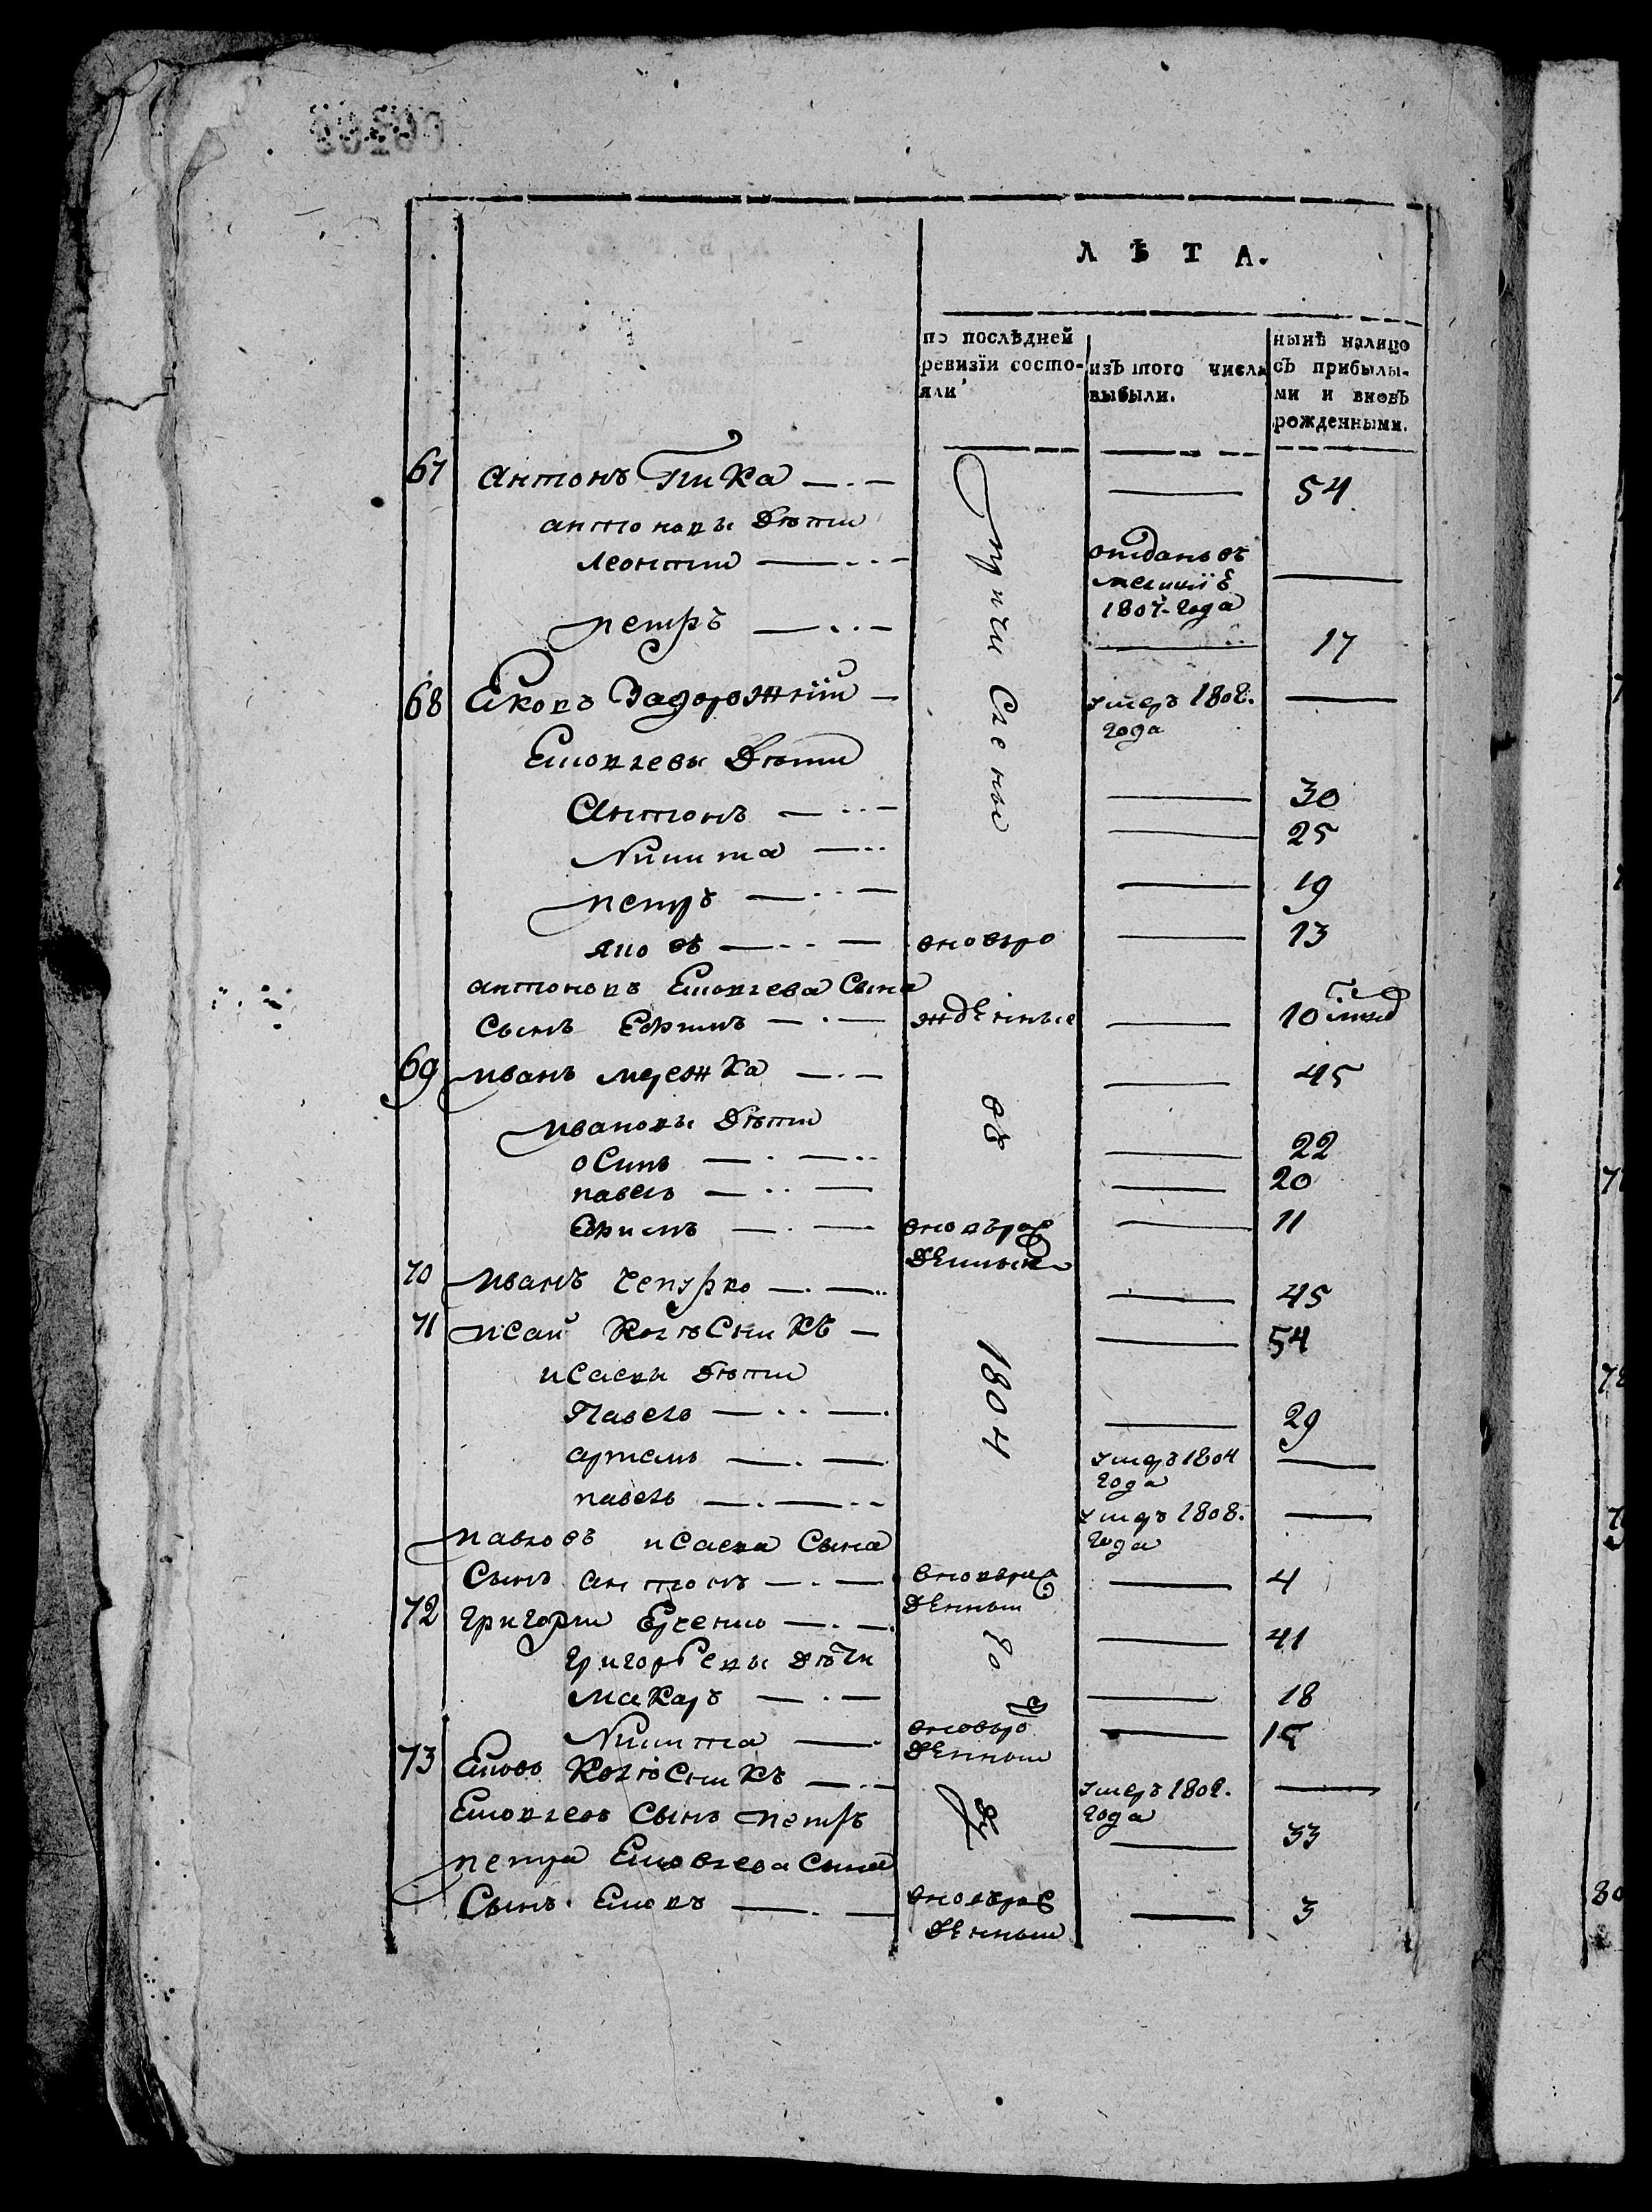 ЛѢТА.
по послѣдней
ревизїи состо-
яли
изъ того числа
выбыли.
нынѣ налицо
съ прибылы-
ми и вновь
рожденными.
67 антонъ Гпика 54
антоновы Дѣти
леонтии отданъ въ
1807-года
петръ 17
68 Ековъ Задорожнїи умеръ 1808.
года
Ековлевы Дѣти
Антонъ 30
Никита 25
петръ 19
яковъ вновьро 13
антоновъ Ековлева Сына
Сынъ Ефимъ жденные 10
69 иванъ мережка 45
ивановы Дѣти
осипъ 22
павелъ 20
Ефимъ вновьрож 11
денные
причи Слены въ 1804 году
70 иванъ Чепурко 45
71 исай Колѣсникъ 54
исаевы Дѣти
Павелъ 29
артемъ умеръ 1804
года
павелъ умеръ 1808.
года
павловъ исаева Сына
Сынъ антонъ вновьрож 4
денныи
72 григории Ерченко 41
григорьевы дѣти
Макаръ 18
Никита вновьро 15
денныи
73 Ековъ Колѣсникъ умеръ 1808.
года
Ековлевъ Сынъ петръ 33
петра Ековлева Сына
Сынъ Ековъ вновьрож 3
денныи